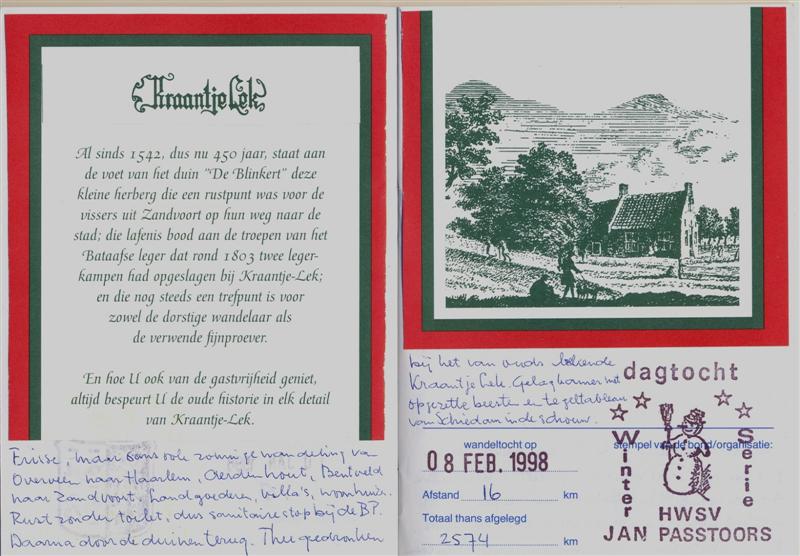 Kraantje Lek
Al sinds 1542, dus nu 450 jaar, staat aan
de voet van het duin "De Blinkert" deze
kleine herberg die een rustpunt was voor de
vissers uit Zandvoort op hun weg naar de
stad; die lafenis bood aan de troepen van het
Bataafse leger dat rond 1803 twee leger-
kampen had opgeslagen bij Kraantje-Lek;
en die nog steeds een trefpunt is voor
zowel de dorstige wandelaar als
de verwende fijnproever.
En hoe U ook van de gastvrijheid geniet,
altijd bespeurt U de oude historie in elk detail
van Kraantje-Lek.
Frisse, maar zonnige wandeling van
Overveen naar Haarlem, Aerdenhout, Bentveld
naar Zandvoort, landgoederen, villa's, woonhuizen.
Rust zonder toilet, dus sanitaire stop bij de BP.
Daarna door de duinen terug. Thee gedronken
bij het van ouds bekende
Kraantje Lek. Gelagkamer met
opgezette beesten en tegeltableau
van Schiedam in de schouw.
dagtocht
wandeltocht op
stempel van de bond/organisatie:
08 FEB. 1998
Winter
Serie
Afstand 16 km
HWSV
Totaal thans afgelegd
JAN PASSTOORS
2574 km